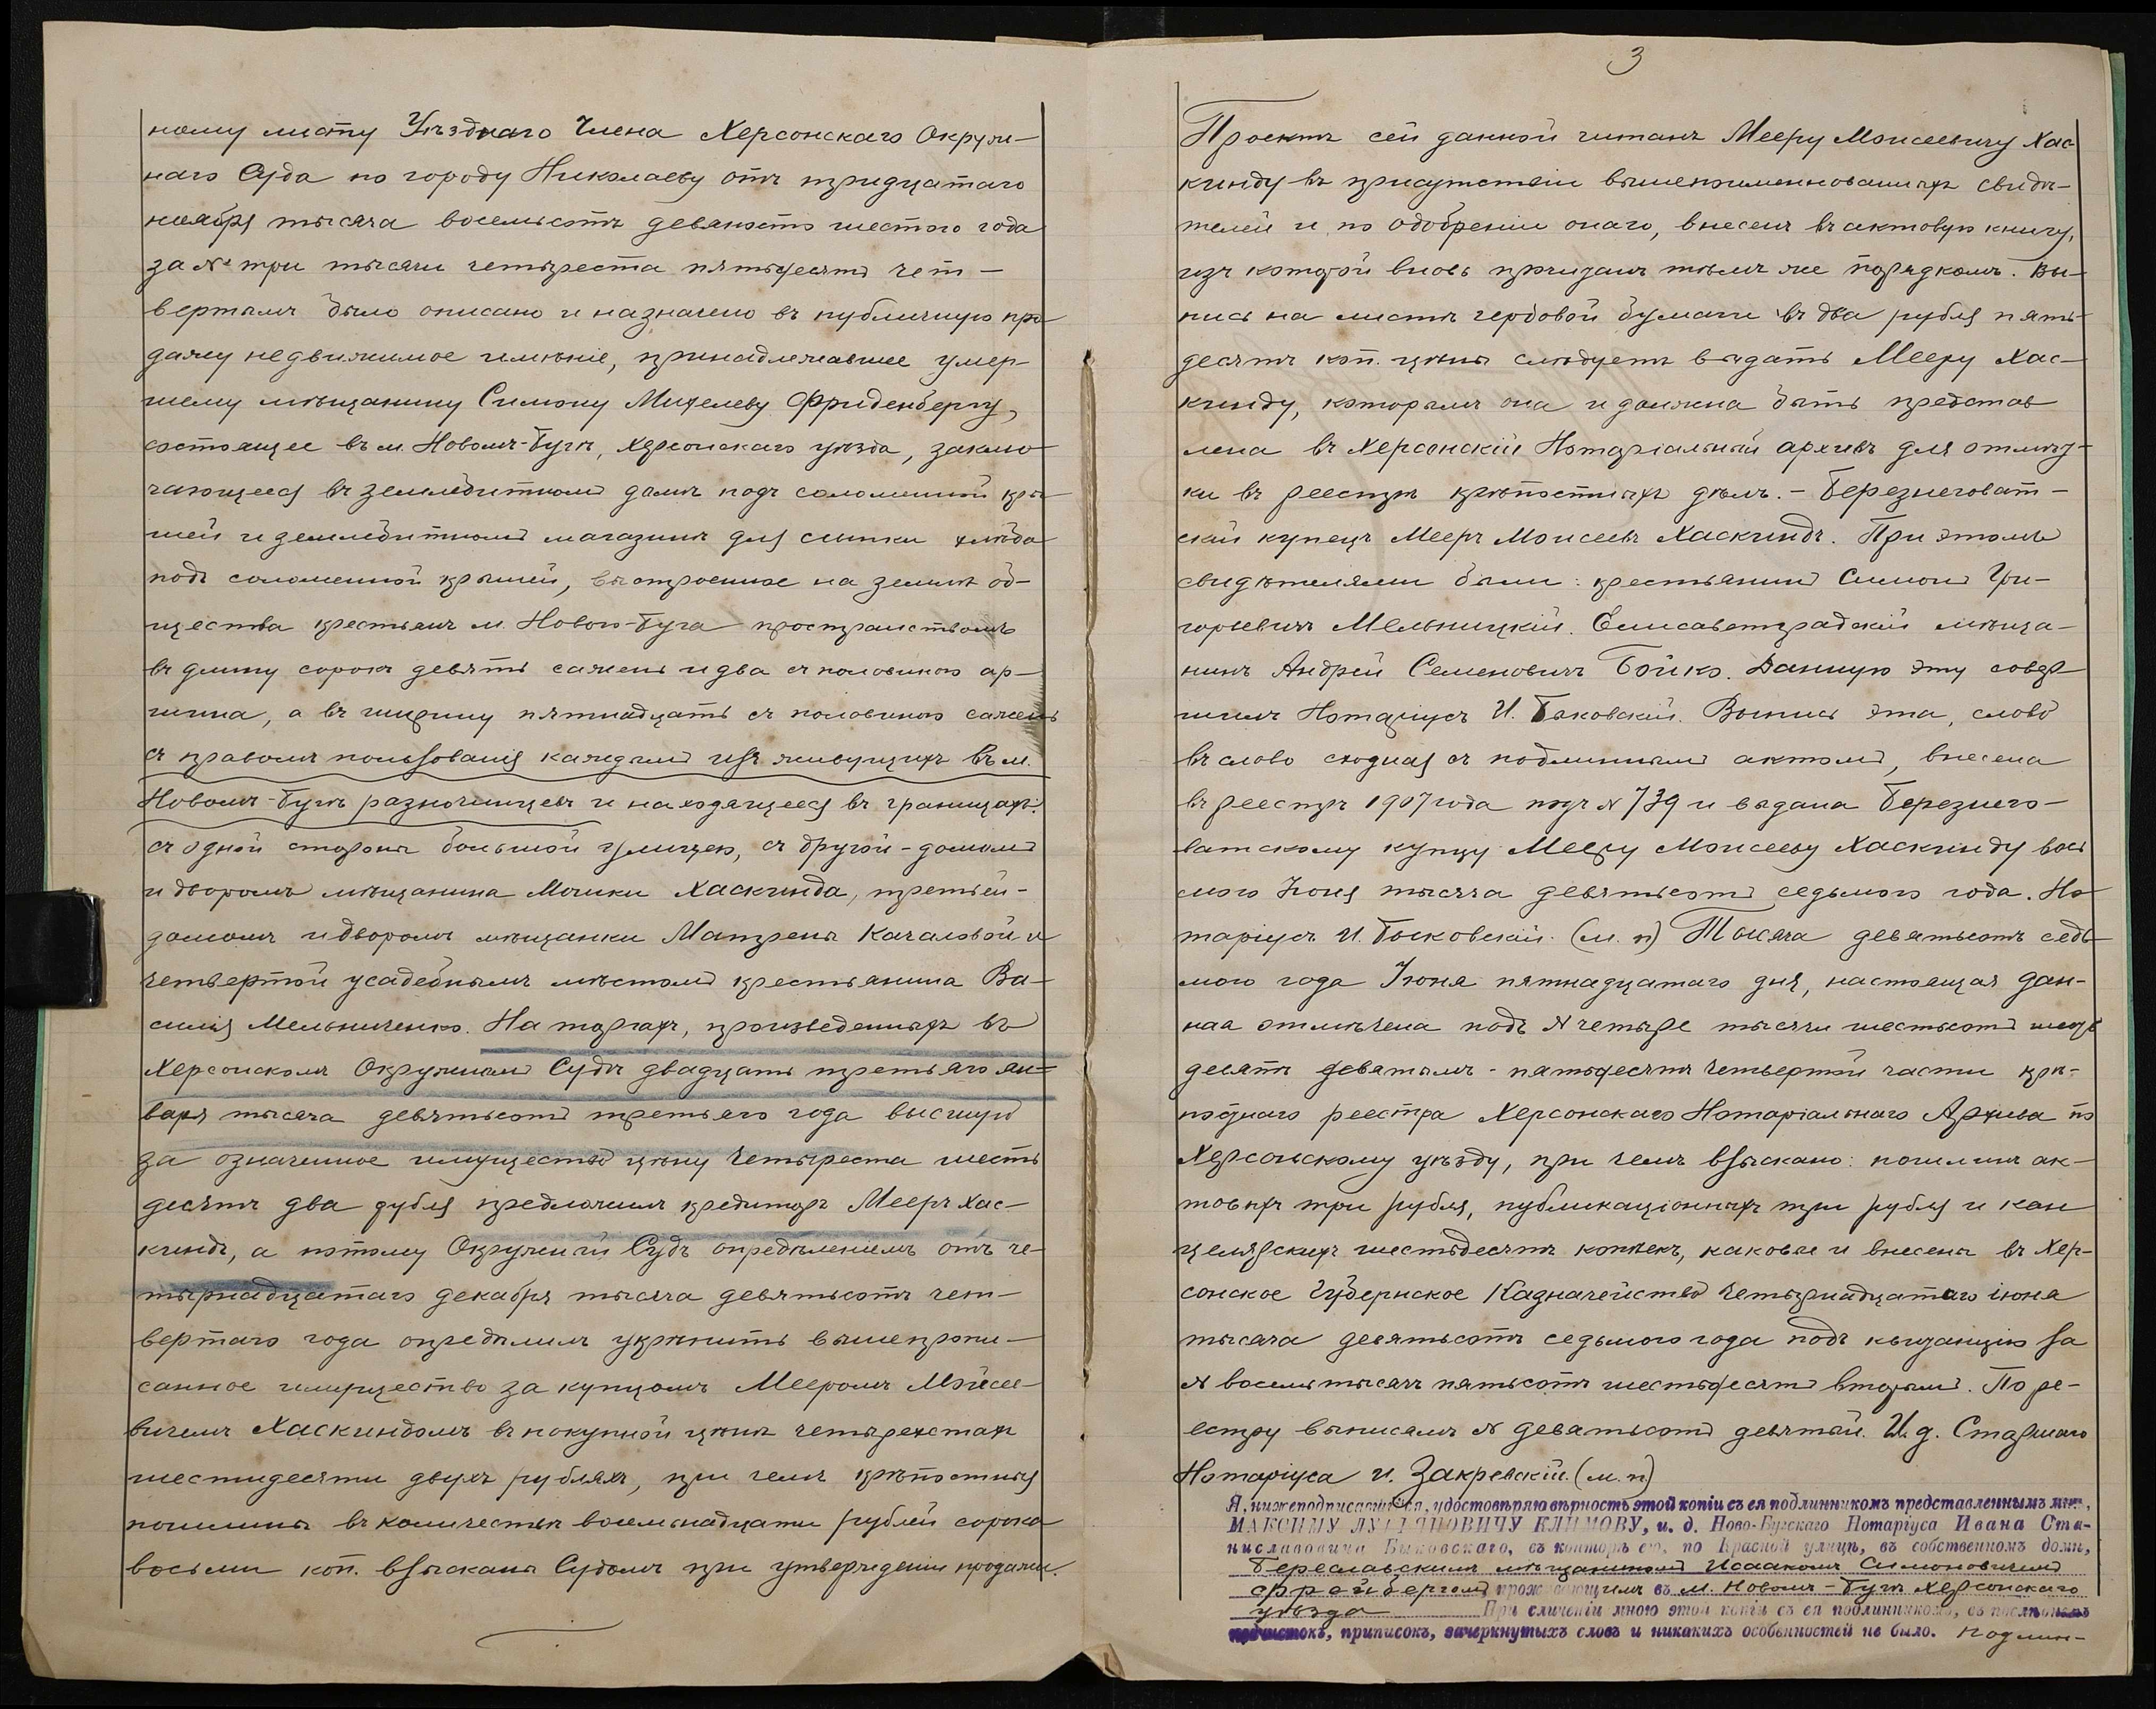 ному листу Уѣзднаго Члена Херсонскаго Окруж-
наго Суда по городу Николаеву отъ тридцатаго
ноября тысяча восемьсотъ девяносто шестого года
за № три тысячи четыреста пятьдесятъ чет-
вертымъ было описано и назначено въ публичную про-
дажу недвижимое имѣніе, принадлежавшее умер-
шему мѣщанину Симону Михелеву Фриденбергу,
состоящее въ м. Новомъ-Бугѣ, Херсонскаго уѣзда, заклю-
чающееся въ землебитномъ домѣ подъ соломенной кры-
шей и землебитномъ магазинѣ для сыпки хлѣба
подъ соломенной крышей, выстроенное на землѣ об-
щества крестьянъ м. Новаго-Буга пространствомъ
въ длину сорокъ девять сажень и два съ половиною ар-
шина, а въ ширину пятнадцать съ половиною сажень
съ правомъ пользованія каждымъ изъ живущихъ въ м.
Новомъ-Бугѣ разночинцевъ и находящееся въ границахъ:
съ одной стороны большой улицею, съ другой - домомъ
и дворомъ мѣщанина Мошки Хаскинда, третьей -
домомъ и дворомъ мѣщанки Матрены Качаловой и
четвертой усадебнымъ мѣстомъ крестьянина Ва-
силія Мельниченко. На торгахъ, произведенныхъ въ
Херсонскомъ Окружномъ Судѣ двадцать третьяго ян-
варя тысяча девятьсотъ третьяго года высшую
за означенное имущество цѣну четыреста шесть
десятъ два рубля предложилъ кредиторъ Мееръ Хас-
киндъ, а потому Окружный Судъ опредѣленіемъ отъ че-
тырнадцатаго декабря тысяча девятьсотъ чет-
вертаго года опредѣлилъ укрѣпить вышепропи-
санное имущество за купцомъ Мееромъ Мойсее-
вичемъ Хаскиндомъ въ покупной цѣнѣ четырехстахъ
шестидесяти двухъ рубляхъ, при чемъ крѣпостныя
пошлины въ количествѣ восемьнадцати рублей сорока
восьми коп. взысканы Судомъ при утвержденіи продажи.
3
Проектъ сей данной читанъ Мееру Моисеевичу Хас-
кинду въ присутствіи вышепоименнованныхъ свидѣ-
телей и по одобреніи онаго, внесенъ въ актовую книгу,
изъ которой вновь прочитанъ тѣмъ же порядкомъ. Вы-
пись на листѣ гербовой бумаги въ два рубля пять-
десятъ коп. цѣны слѣдуетъ выдать Мееру Хас-
кинду, которымъ она и должна быть представ
лена въ Херсонскій Нотаріальный архивъ для отмѣт-
ки въ реестрѣ крѣпостныхъ дѣлъ. - Березнеговат-
скій купецъ Мееръ Моисеевъ Хаскиндъ. При этомъ
свидѣтелями были: крестьянинъ Симонъ Гри-
горьевичъ Мельницкій. Елисаветградскій мѣща-
нинъ Андрей Семеновичъ Бойко. Данную эту совер-
шилъ Нотаріусъ И. Быковскій. Выпись эта, слово
въ слово сходная съ подлиннымъ актомъ, внесена
въ реестръ 1907 года подъ № 739 и выдана Березнего-
ватскому купцу Мееру Моисееву Хаскинду вось
мого Іюня тысяча девятьсотъ седьмого года. Но-
таріусъ И. Быковскій. (м. п) Тысяча девятьсотъ седь-
мого года Іюня пятнадцатаго дня, настоящая дан-
ная отмѣчена подъ № четыре тысячи шестьсотъ шесть
десятъ девятымъ - пятьдесятъ четвертой части крѣ-
постнаго реестра Херсонскаго Нотаріальнаго Архива по
Херсонскому уѣзду, при чемъ взыскано: пошлинъ ак-
товыхъ три рубля, публикаціонныхъ три рубля и кан
целярскихъ шестьдесятъ копѣекъ, каковые и внесены въ Хер-
сонское Губернское Казначейство четырнадцатаго іюня
тысяча девятьсотъ седьмого года подъ квитанцію за
№ восемь тысячъ пятьсотъ шестьдесятъ вторымъ. По ре-
естру выписямъ № девятьсотъ девятый. И. д. Старшаго
Нотаріуса И. Закревскій. (м. п)
Я, нижеподписавшійся, удостовѣряю вѣрность этой копіи съ ея подлинникомъ представленнымъ мнѣ,
МАКСИМУ ЛУКЬЯНОВИЧУ КЛИМОВУ, и. д. Ново-Бугскаго Нотаріуса Ивана Ста-
ниславовича Быковскаго, въ конторѣ его, по Красной улицѣ, въ собственномъ домѣ,
Береславскимъ мѣщаниномъ Исаакомъ Симоновичемъ
Фрейбергомъ, проживающимъ въ м. Новомъ-Бугѣ Херсонскаго
уѣзда При сличеніи мною этой копіи съ ея подлинникомъ, въ послѣднемъ
подчистокъ, приписокъ, зачеркнутыхъ словъ и никакихъ особенностей не было. Подлин-